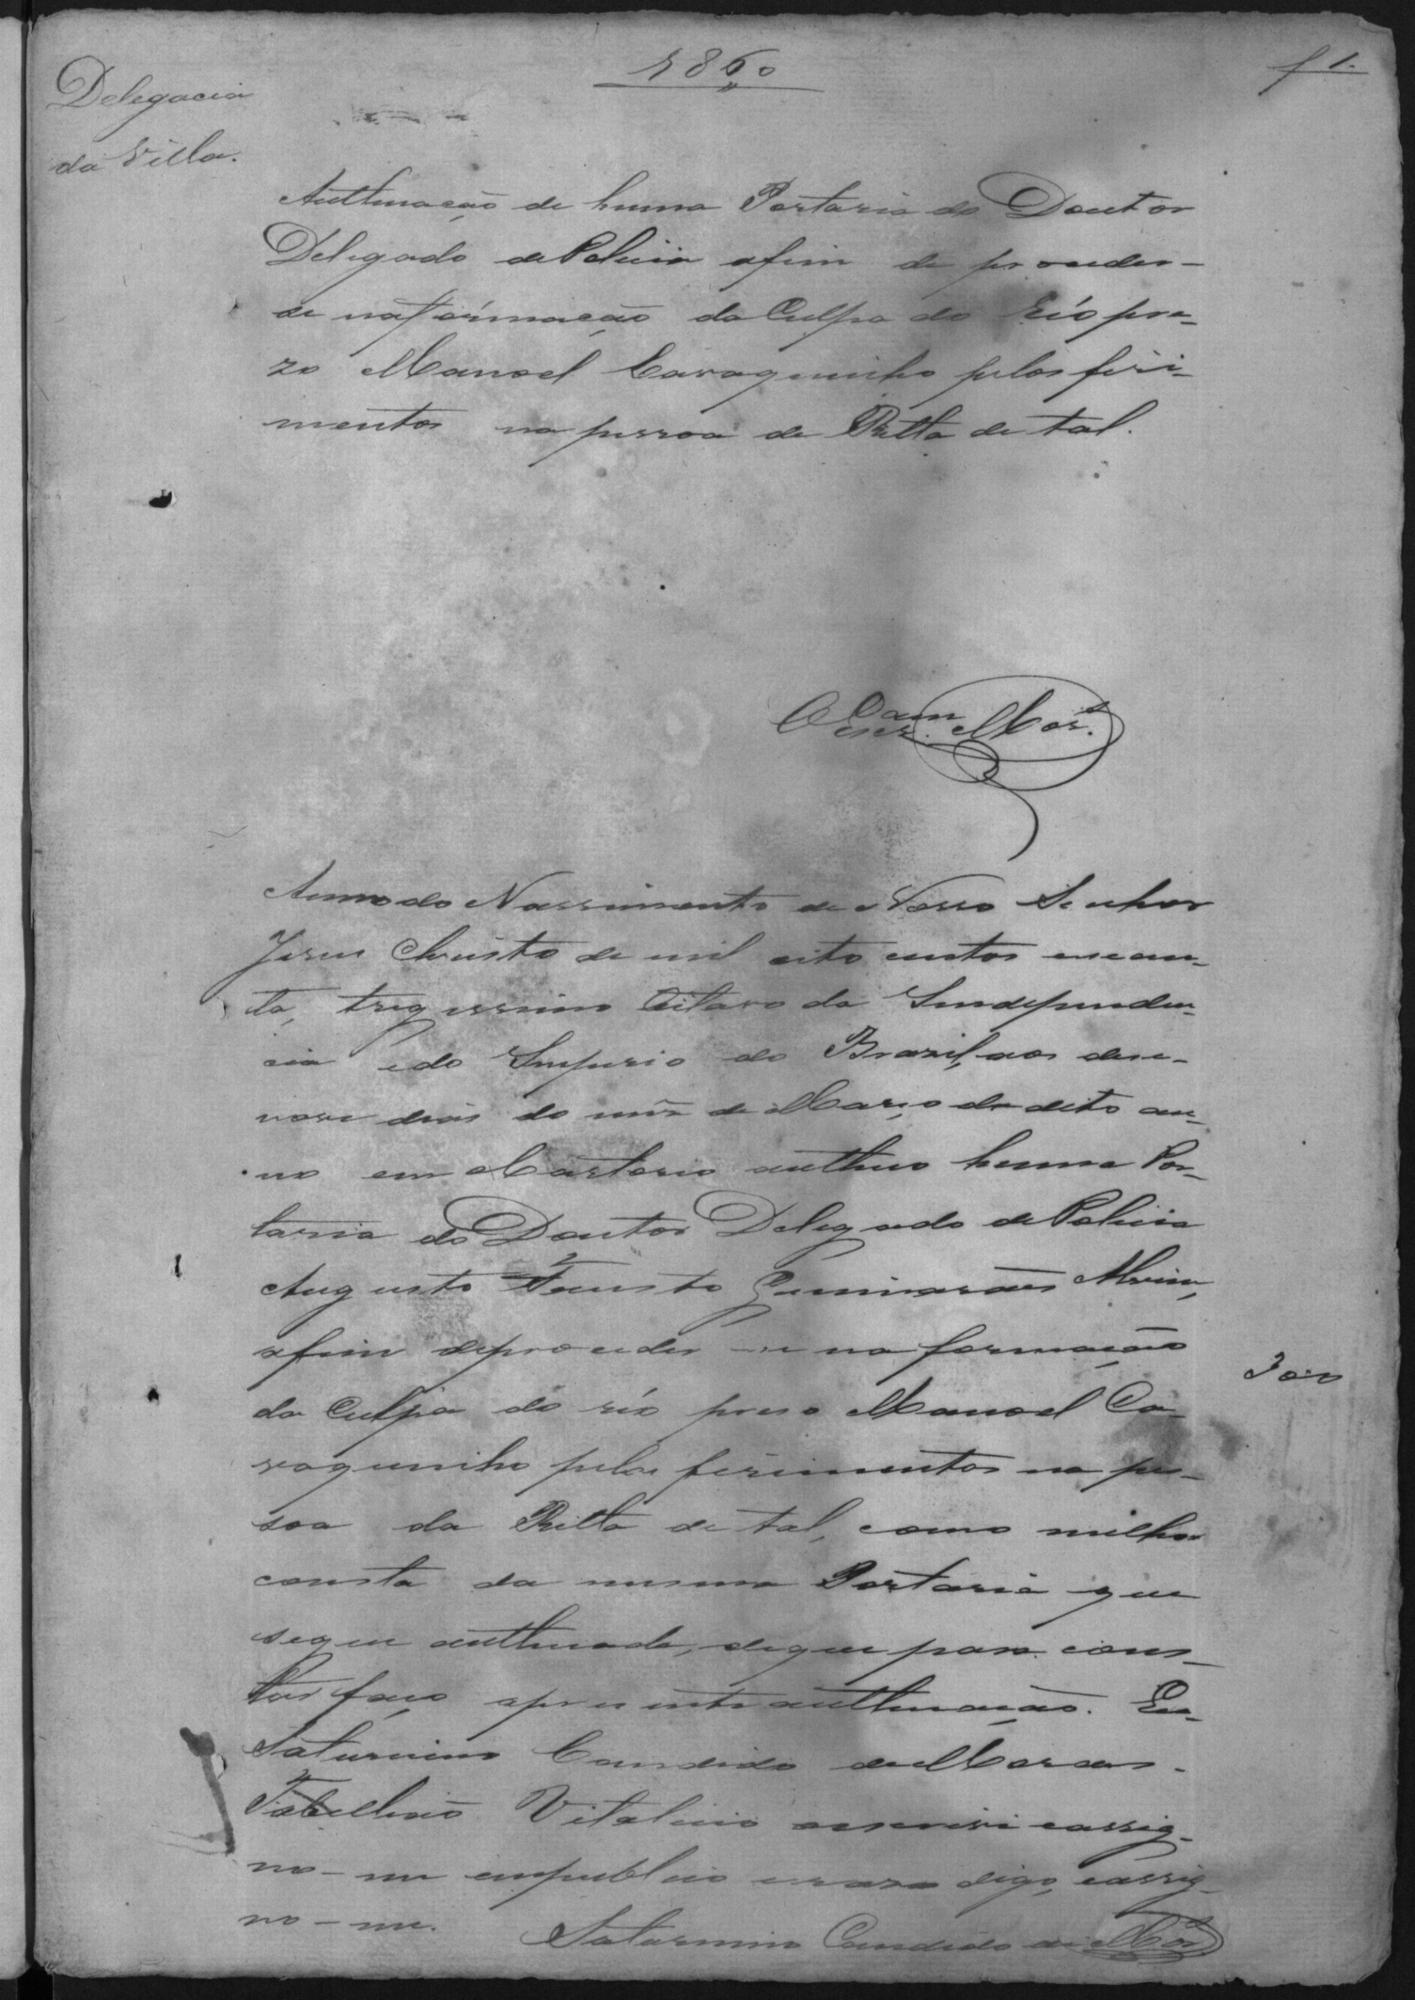 1860
f 1.
Delegacia
da Villa.
Authuação de huma Portaria do Doutor
Delegado de Policia afim de proceder-
se na formação da Culpa do Réo pre-
zo Manoel Caraguinho pelos feri-
mentos na pessoa de Ritta de tal.
O Escr.am Mor.s
Anno do Nascimento de Nosso Senhor
Jesus Christo de mil oito centos e secen-
ta, trigessimo Oitavo da Independen-
cia e do Imperio do Brazil, aos dese-
nove dias do mês de Março do dito an-
no em Cartorio authuo huma Por-
taria do Doutor Delegado de Policia
Augusto Fausto Guimarães Alvim,
afim de proceder-se na formação
da Culpa do réo preso Manoel Ca-
raguinho pelos ferimentos na pes-
soa da Ritta de tal, como milhor
consta da mesma Portaria que
segue authuada, de que para cons-
tar faço apresente authuação. Eu
Saturnino Candido de Moraes
Tabellião Vitalicio escrevi e assig-
no-me em publico e razo digo, e assig-
no-me.
300
Saturnino Candido de Mor.s